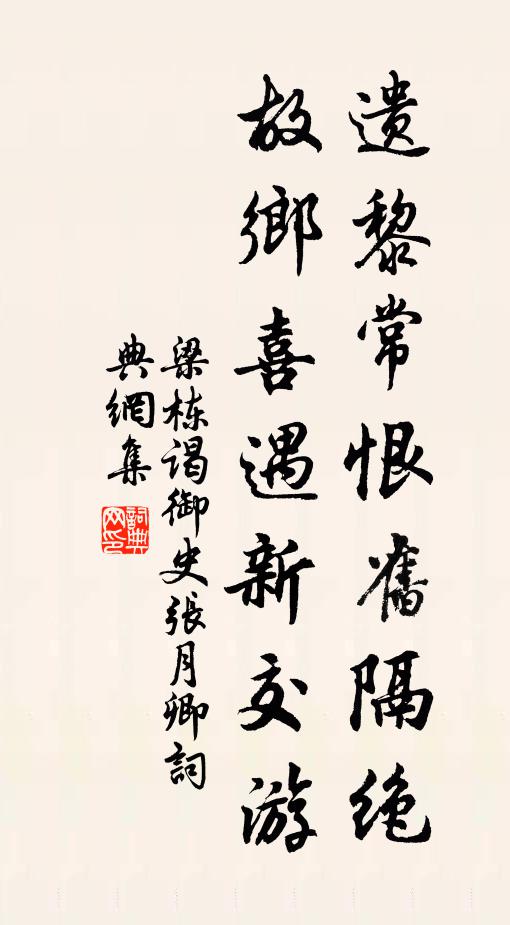 遗黎常恨舊隔绝
故鄉喜遇新交游
梁栋谒御史張月卿詞
典網集
詞典网印